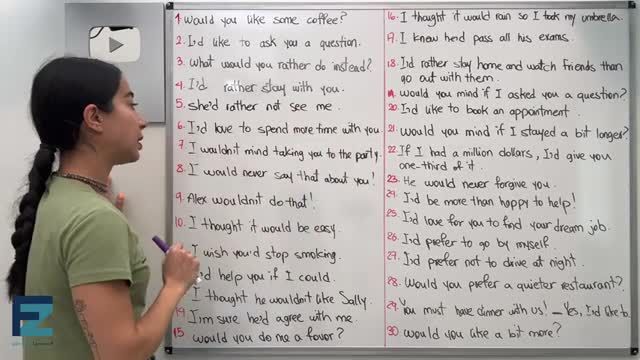 1. Would you like some coffee?
2. I'd like to ask you a question.
3. What would you rather do instead?
4. I'd rather stay with you.
5. she'd rather not see me.
6. I'd love to spend more time with you
7. I wouldn't mind taking you to the party.
8. I would never say that about you!
9. Alex wouldn't do that!
10. I thought it would be easy.
I wish you'd stop smoking.
I'd help you if I could.
I thought he wouldn't like Sally.
14. I'm sure he'd agree with me.
15. would you do me a favor?
16. I thought it would rain so I took my umbrella.
17. I knew he'd pass all his exams.
18. I'd rather stay home and watch Friends than
go out with them.
19. would you mind if I asked you a question?
20. I'd like to book an appointment.
21. Would you mind if I stayed a bit longer?
22. If I had a million dollars, I'd give you
one-third of it.
23. He would never forgive you.
24. I'd be more than happy to help!
25. I'd love for you to find your dream job.
26. I'd prefer to go by myself.
27. I'd prefer not to drive at night.
28. Would you prefer a quieter restaurant?
29. You must have dinner with us! – Yes, I'd like to.
30. would you like a bit more?
EZ